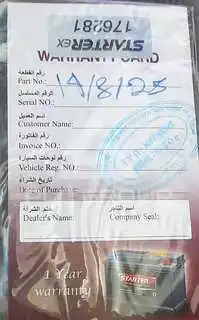 STARTEREX
176281
WARRANTY CARD
رقم القطعة
Part No.: 19/8/25
الرقم المسلسل
Serial NO.:
اسم العميل
Customer Name:
رقم الفاتورة
Invoice NO.:
رقم لوحات السيارة
Vehicle Reg. NO.:
تاريخ الشراء
Date of Purchase:
اسم التاجر ختم الشركة
Dealer's Name: Company Seal:
1 Year
warranty
STARTER